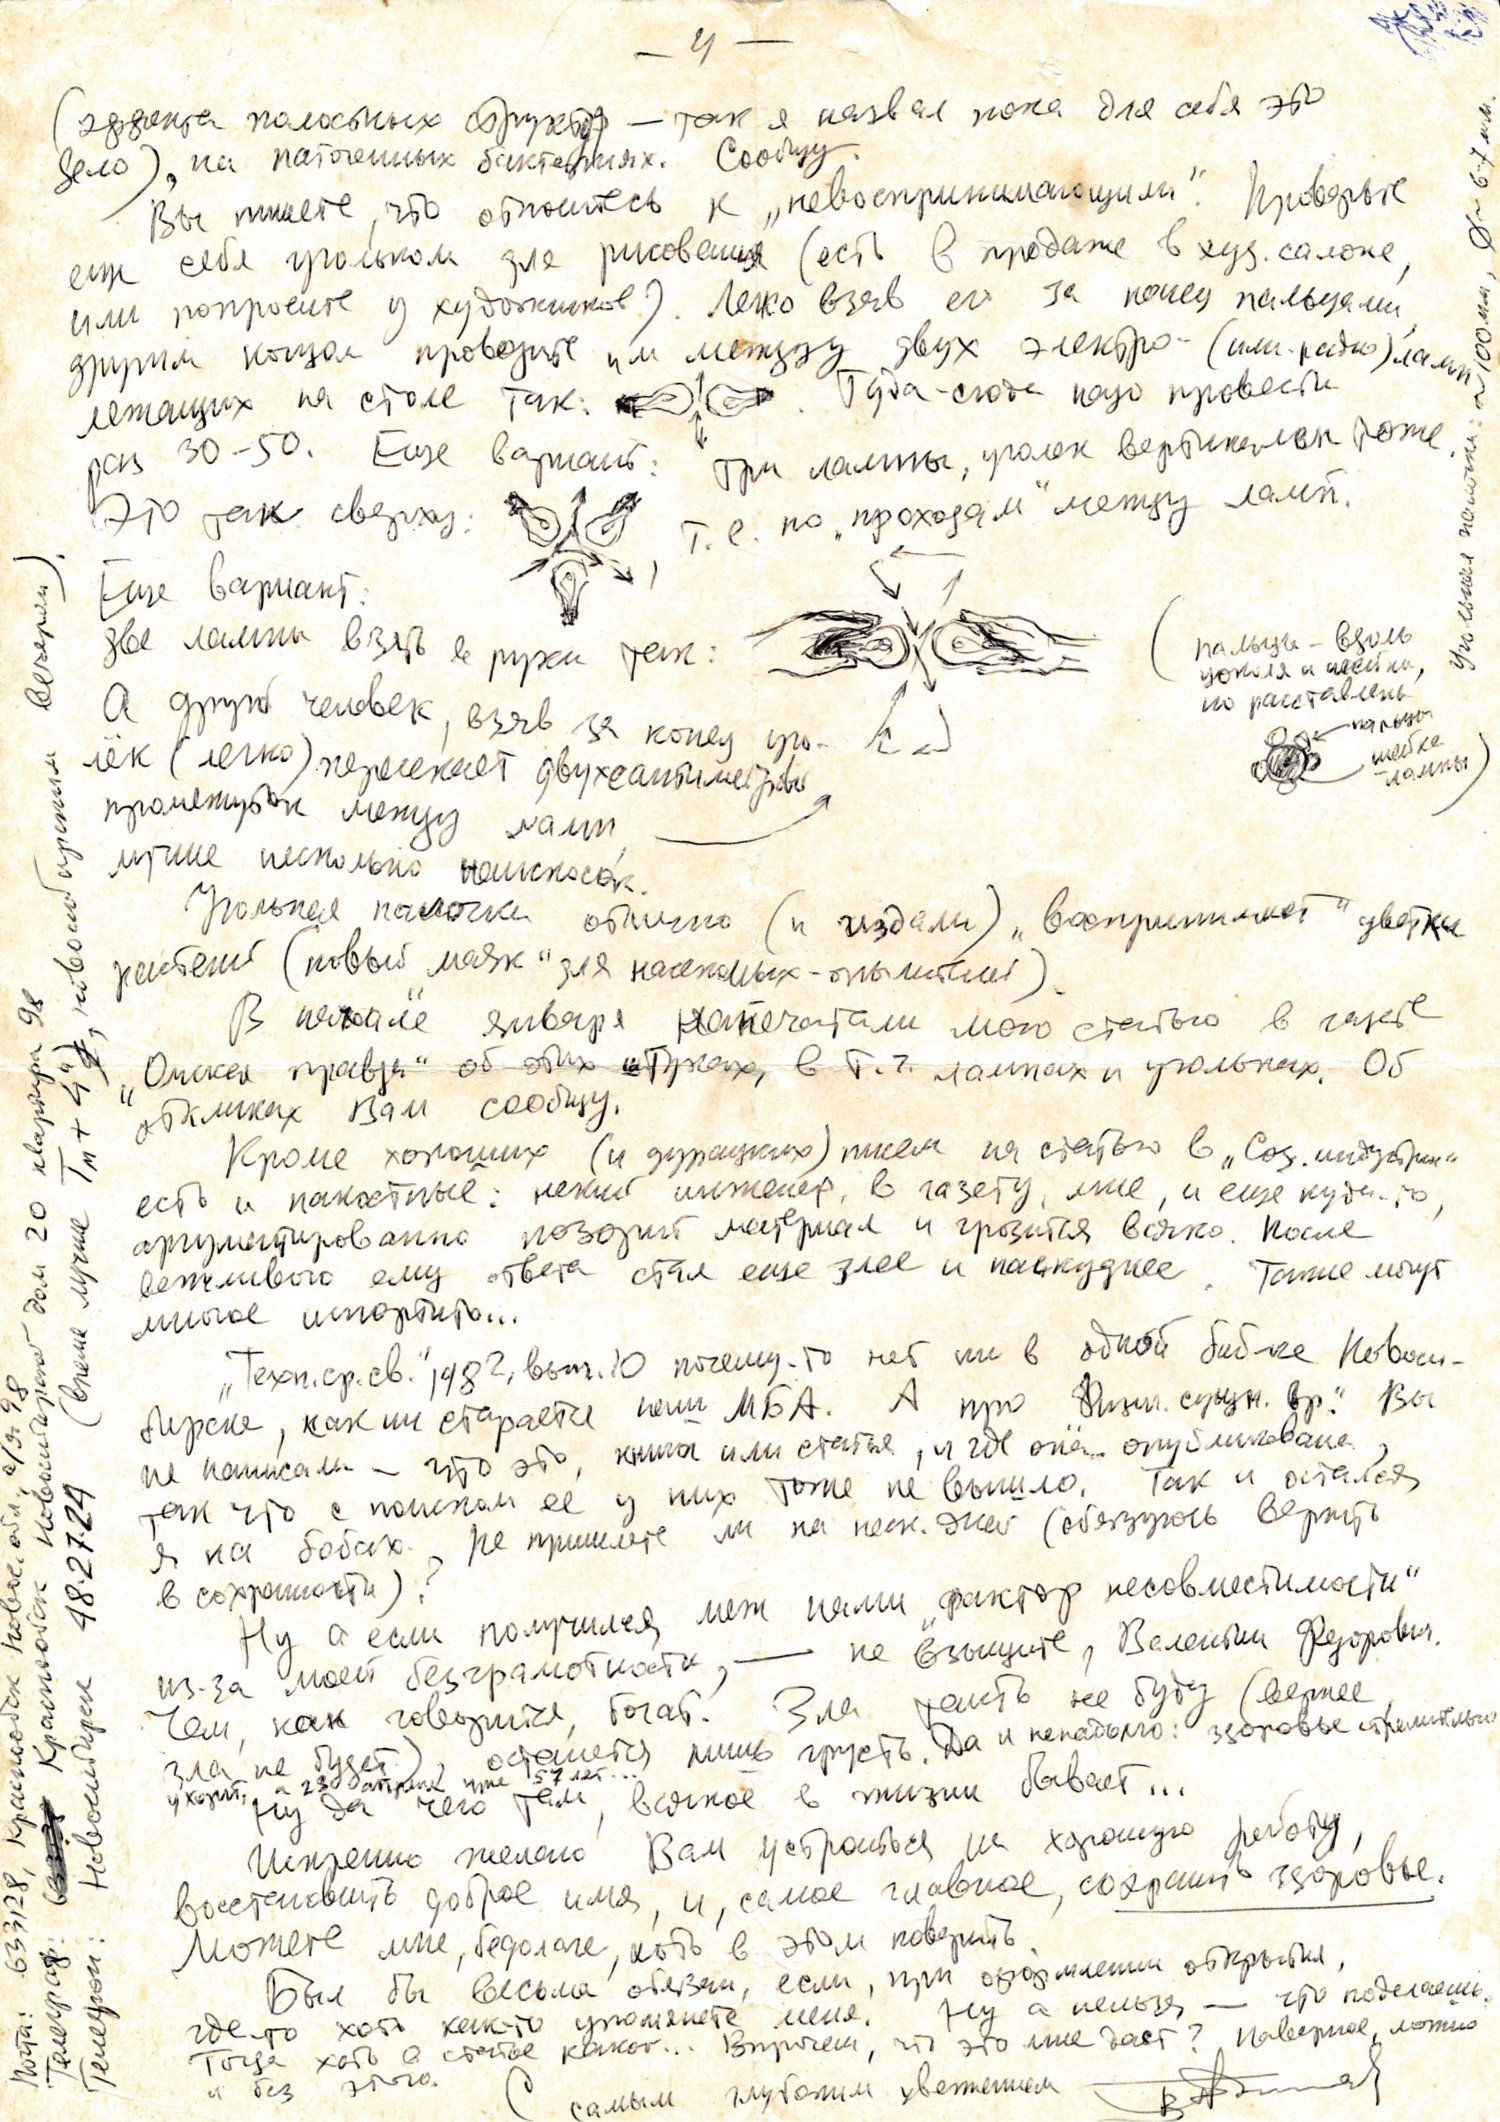 — 4 —
(эффекта полостных структур — так я назвал пока для себя это
дело), на патогенных бактериях. Сообщу.
Вы пишете, что относитесь к „невоспринимающим". Проверьте
еще себя угольком для рисования (есть в продаже в худ. салоне,
или попросите у художников). Легко взяв его за конец пальцами,
другим концом проводите им между двух электро- (или радио) ламп,
лежащих на столе так: . Туда-сюда надо провести
раз 30-50. Еще вариант: три лампы, уголек вертикален тоже.
Это так сверху: , т.е. по „проходам" между ламп.
Еще вариант:
две лампы взять в руки так:
(пальцы - вдоль
цоколя и шейки,
но расставлены
пальцы
шейка
лампы)
А другой человек, взяв за конец уго-
лёк (легко) пересекает двухсантиметровый
промежуток между ламп,
лучше несколько наискосок.
Угольная палочка отлично (и издали) „воспринимает" цветки
растений (новый „маяк" для насекомых-опылителей).
В начале января напечатали мою статью в газете
„Омская правда" об этих штуках, в т.ч. лампах и угольках. Об
откликах Вам сообщу.
Кроме хороших (и дурацких) писем на статью в „Соц. индустрии"
есть и пакостные: некий инженер, в газету, мне, и еще куда-то,
аргументированно позорит материал и грозится всяко. После
вежливого ему ответа стал еще злее и паскуднее. Такие могут
многое испортить...
„Техн. ср. св.", 1982, вып. 10 почему-то нет ни в одной биб-ке Новоси-
бирска, как ни старается наш МБА. А про „Физич. сущн. вр." Вы
не написали — что это, книга или статья, и где она опубликована,
так что с поиском ее у них тоже не вышло. Так и остался
я на бобах. Не пришлете ли на неск. дней (обязуюсь вернуть
в сохранности)?
Ну а если получился меж нами „фактор несовместимости"
из-за моей безграмотности, — не взыщите, Валентин Федорович.
Чем, как говорится, богат. Зла таить не буду (вернее,
зла не будет), останется лишь грусть. Да и ненадолго: здоровье стремительно
уходит, а 23 уже 57 лет...
Ну да чего там, всякое в жизни бывает...
Искренно желаю Вам устроиться на хорошую работу,
восстановить доброе имя, и, самое главное, сохранить здоровье.
Можете мне, бедолаге, хоть в этом поверить.
Был бы весьма обязан, если, при оформлении открытия,
где-то хоть как-то упомянете меня. Ну а нельзя — что поделаешь.
Тогда хоть в статье какой... Впрочем, что это мне даст? Наверное, можно
и без этого.
С самым глубоким уважением
Угольная палочка: ~100 мм, Ø ~ 6-7 мм.
Почта: 633128, Краснообск Новос. обл., а/я 98
Телеграф: Краснообск Новосибирской дом 20 квартира 98
Телефон: Новосибирск 48-27-24 (время лучше Tм + 4ч, новосибирским вечером).